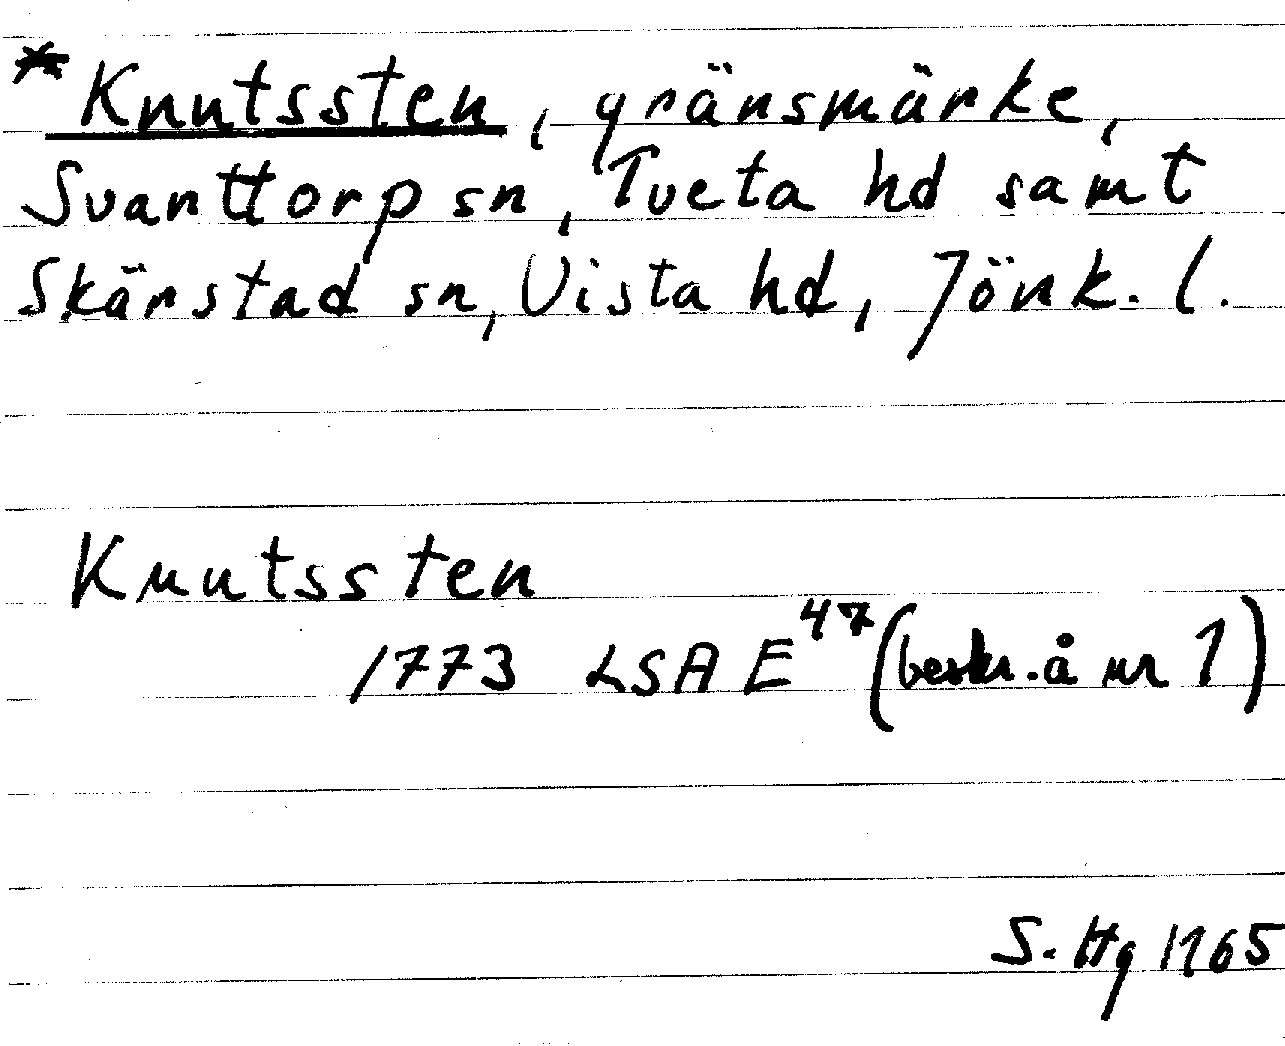 *Knutssten, gränsmärke,
Svarttorp sn, Tveta hd samt
Skärstad sn, Vista hd, Jönk. l.
Knutssten
1773 LSA E 47 (beskr. å nr 1)
S. Hg 1965